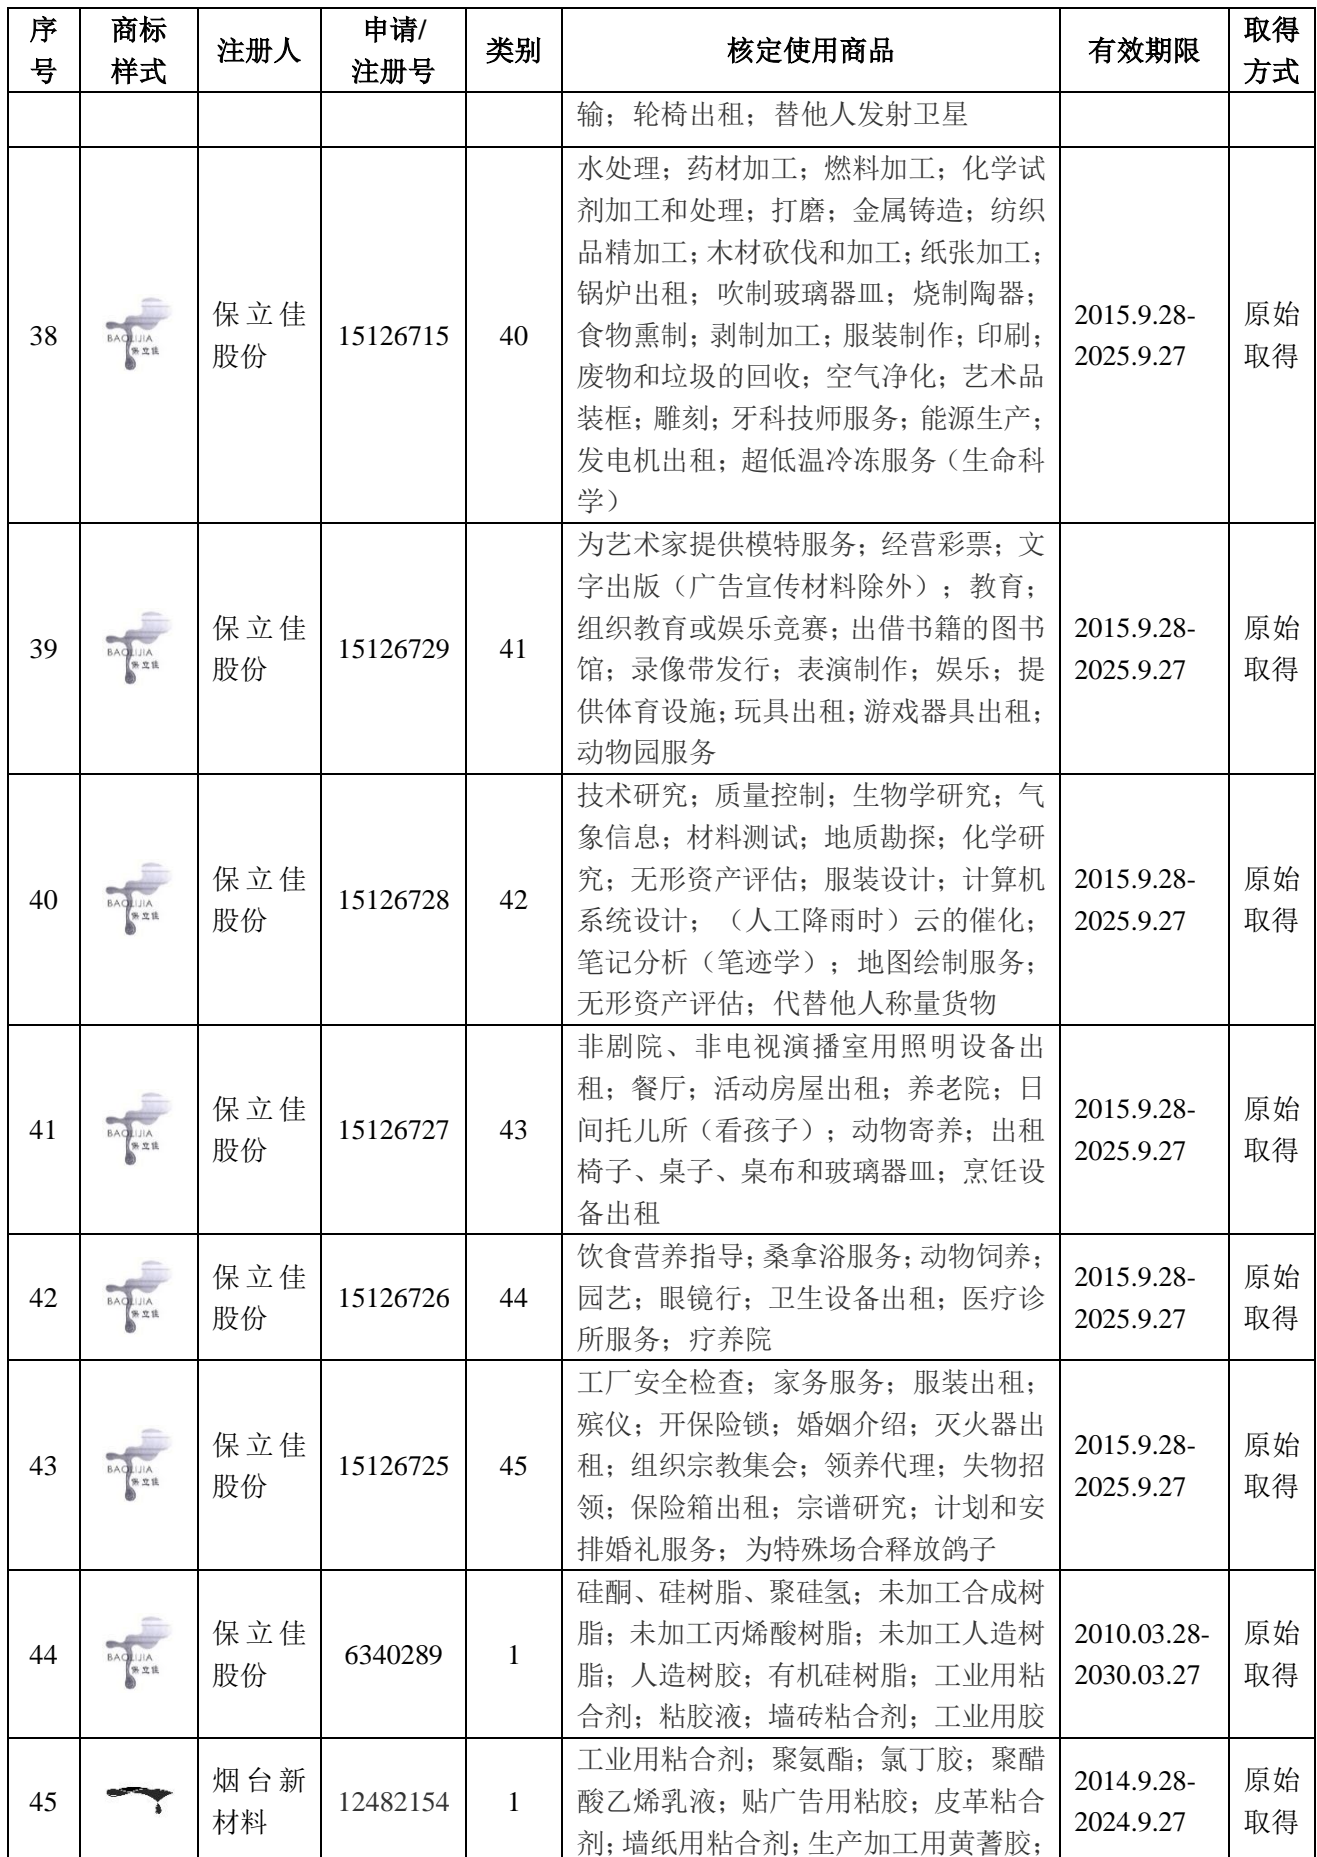 序号 商标样式 注册人 申请/注册号 类别 核定使用商品 有效期限 取得方式
输；轮椅出租；替他人发射卫星
38
BAOLIJIA
保立佳
保立佳
股份
15126715
40
水处理；药材加工；燃料加工；化学试
剂加工和处理；打磨；金属铸造；纺织
品精加工；木材砍伐和加工；纸张加工；
锅炉出租；吹制玻璃器皿；烧制陶器；
食物熏制；剥制加工；服装制作；印刷；
废物和垃圾的回收；空气净化；艺术品
装框；雕刻；牙科技师服务；能源生产；
发电机出租；超低温冷冻服务（生命科
学）
2015.9.28-
2025.9.27
原始
取得
39
BAOLIJIA
保立佳
保立佳
股份
15126729
41
为艺术家提供模特服务；经营彩票；文
字出版（广告宣传材料除外）；教育；
组织教育或娱乐竞赛；出借书籍的图书
馆；录像带发行；表演制作；娱乐；提
供体育设施；玩具出租；游戏器具出租；
动物园服务
2015.9.28-
2025.9.27
原始
取得
40
BAOLIJIA
保立佳
保立佳
股份
15126728
42
技术研究；质量控制；生物学研究；气
象信息；材料测试；地质勘探；化学研
究；无形资产评估；服装设计；计算机
系统设计；（人工降雨时）云的催化；
笔记分析（笔迹学）；地图绘制服务；
无形资产评估；代替他人称量货物
2015.9.28-
2025.9.27
原始
取得
41
BAOLIJIA
保立佳
保立佳
股份
15126727
43
非剧院、非电视演播室用照明设备出
租；餐厅；活动房屋出租；养老院；日
间托儿所（看孩子）；动物寄养；出租
椅子、桌子、桌布和玻璃器皿；烹饪设
备出租
2015.9.28-
2025.9.27
原始
取得
42
BAOLIJIA
保立佳
保立佳
股份
15126726
44
饮食营养指导；桑拿浴服务；动物饲养；
园艺；眼镜行；卫生设备出租；医疗诊
所服务；疗养院
2015.9.28-
2025.9.27
原始
取得
43
BAOLIJIA
保立佳
保立佳
股份
15126725
45
工厂安全检查；家务服务；服装出租；
殡仪；开保险锁；婚姻介绍；灭火器出
租；组织宗教集会；领养代理；失物招
领；保险箱出租；宗谱研究；计划和安
排婚礼服务；为特殊场合释放鸽子
2015.9.28-
2025.9.27
原始
取得
44
BAOLIJIA
保立佳
保立佳
股份
6340289
1
硅酮、硅树脂、聚硅氢；未加工合成树
脂；未加工丙烯酸树脂；未加工人造树
脂；人造树胶；有机硅树脂；工业用粘
合剂；粘胶液；墙砖粘合剂；工业用胶
2010.03.28-
2030.03.27
原始
取得
45
烟台新
材料
12482154
1
工业用粘合剂；聚氨酯；氯丁胶；聚醋
酸乙烯乳液；贴广告用粘胶；皮革粘合
剂；墙纸用粘合剂；生产加工用黄蓍胶；
2014.9.28-
2024.9.27
原始
取得